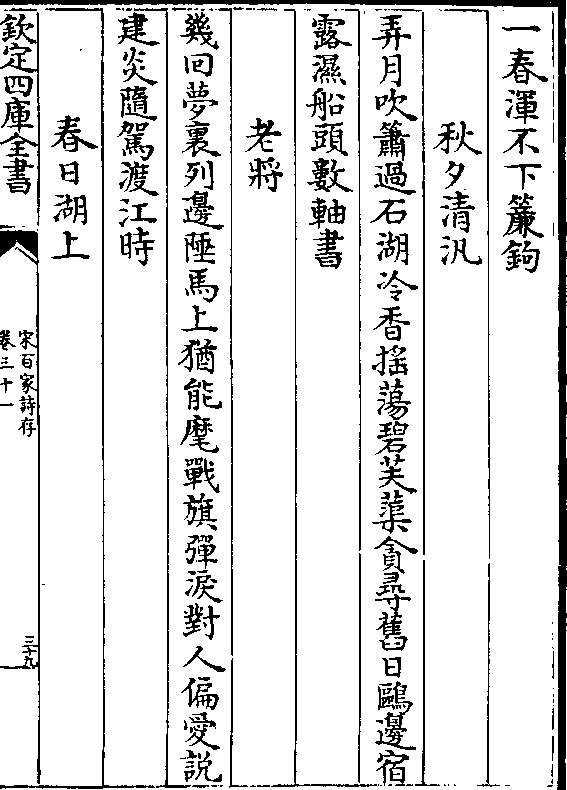 一春渾不下簾鉤
秋夕清汎
弄月吹簫過石湖冷香搖蕩碧芙蕖貪尋舊日鷗邊宿
露濕船頭數軸書
老將
幾回夢裏列邊陲馬上猶能麾戰旗彈淚對人偏愛説
建炎隨駕渡江時
春日湖上
欽定四庫全書
宋百家詩存
卷三十一
三十九